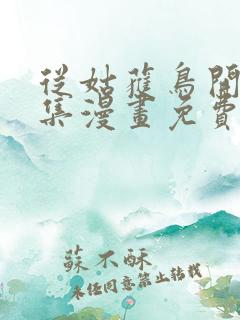 從姑獲鳥開
集漫畫免費
蘇不酥
未經同意禁止轉載